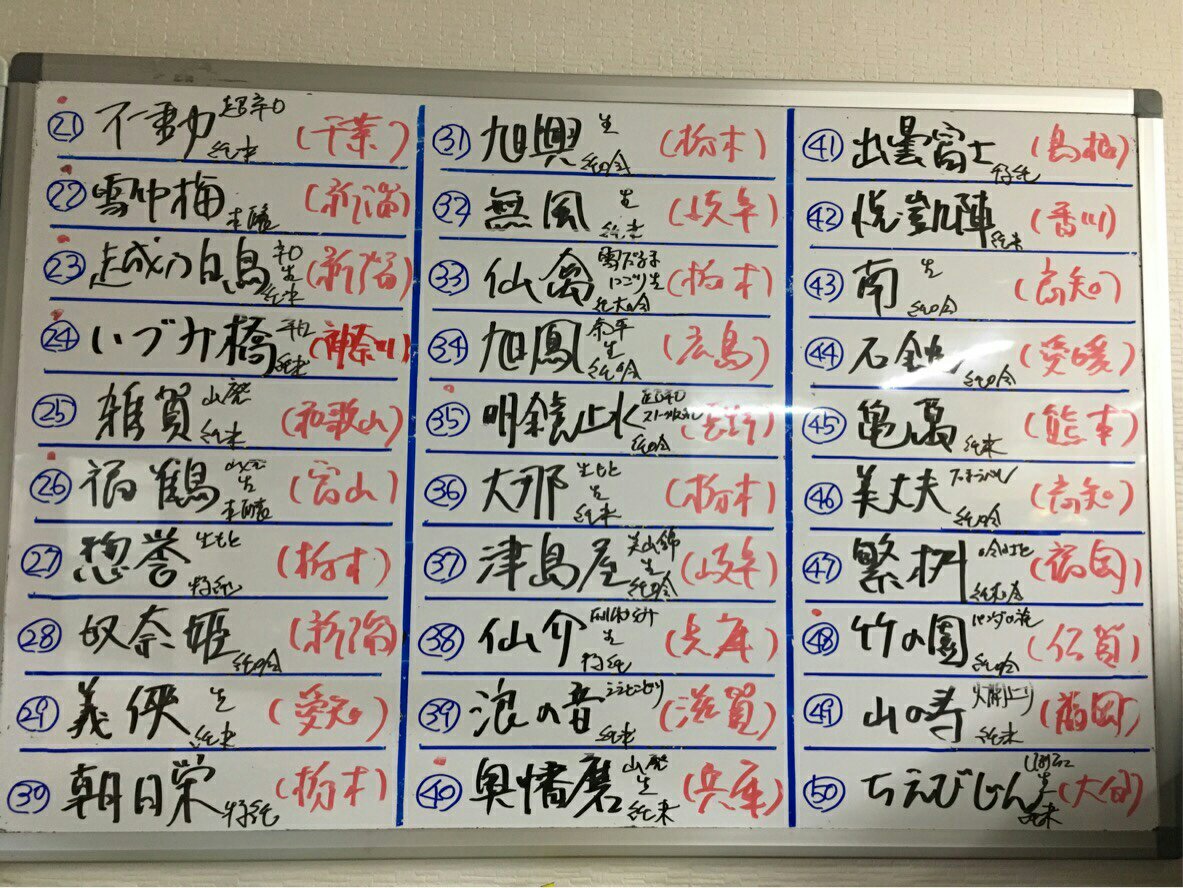 ㉑ 不動 超辛口 純米 (千葉)
㉒ 雪中梅 本醸 (新潟)
㉓ 越乃白鳥 辛口 生 純米 (新潟)
㉔ いづみ橋 辛口 純米 (神奈川)
㉕ 雑賀 山廃 純米 (和歌山)
㉖ 福鶴 生 本醸 (富山)
㉗ 惣誉 生もと 特純 (栃木)
㉘ 奴奈姫 純吟 (新潟)
㉙ 義侠 生 純米 (愛知)
㉚ 朝日栄 特純 (栃木)
㉛ 旭興 生 純吟 (栃木)
㉜ 無風 生 純米 (岐阜)
㉝ 仙禽 雪だるま にごり生 純大吟 (栃木)
㉞ 旭鳳 生 純吟 (広島)
㉟ 明鏡止水 純吟 (長野)
㊱ 大那 生もと 生 純米 (栃木)
㊲ 津島屋 美山錦 生 純吟 (岐阜)
㊳ 仙介 生 特純 (兵庫)
㊴ 浪の音 ええとこどり 純米 (滋賀)
㊵ 奥播磨 山廃 生 純米 (兵庫)
㊶ 出雲富士 特純 (島根)
㊷ 悦凱陣 純米 (香川)
㊸ 南 生 純吟 (高知)
㊹ 石鎚 純吟 (愛媛)
㊺ 亀萬 純米 (熊本)
㊻ 美丈夫 純吟 (高知)
㊼ 繁桝 吟のさと 純米吟 (福岡)
㊽ 竹の園 純吟 (佐賀)
㊾ 山の寿 純米 (福岡)
㊿ ちえびじん 生 純米 (大分)